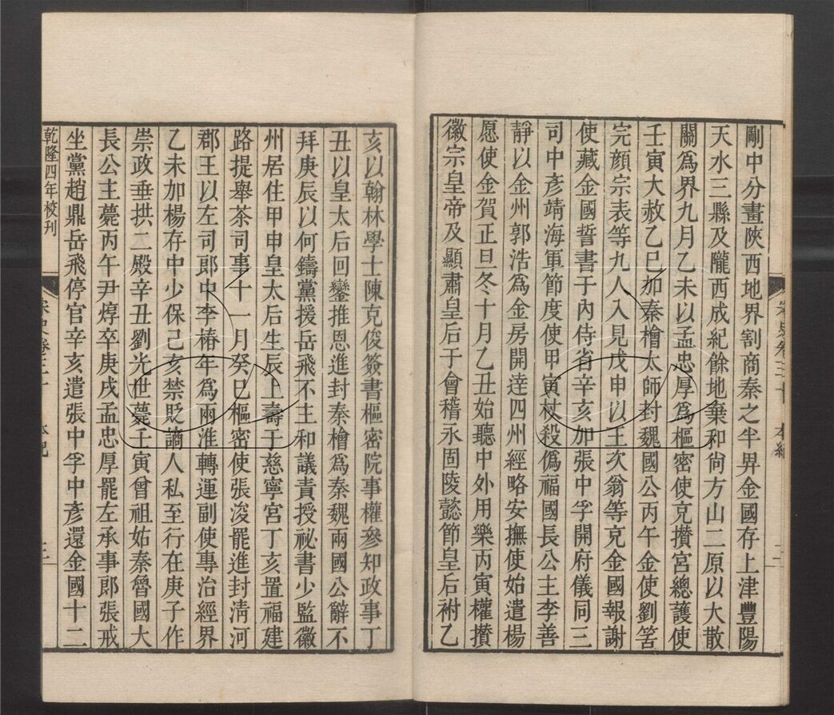 剛中分畫陝西地界割商秦之半畀金國存上津豐陽
天水三縣及隴西成紀餘地棄和尚方山二原以大散
關爲界九月乙未以孟忠厚爲樞密使充攢宮總護使
壬寅大赦乙巳加秦檜太師封魏國公丙午金使劉筈
完顏宗表等九人入見戊申以王次翁等充金國報謝
使藏金國誓書于內侍省辛亥加張中孚開府儀同三
司中彥靖海軍節度使甲寅杖殺僞福國長公主李善
靜以金州郭浩爲金房開達四州經略安撫使始遣楊
愿使金賀正旦冬十月乙丑始聽中外用樂丙寅權攢
徽宗皇帝及顯肅皇后于會稽永固陵懿節皇后祔乙
宋史卷三十 本紀 二
亥以翰林學士陳克俊簽書樞密院事權參知政事丁
丑以皇太后回鑾推恩進封秦檜爲秦魏兩國公辭不
拜庚辰以何鑄黨援岳飛不主和議責授祕書少監徽
州居住甲申皇太后生辰上壽于慈寧宮丁亥置福建
路提舉茶司事十一月癸巳樞密使張浚罷進封清河
郡王以左司郎中李椿年爲兩淮轉運副使專治經界
乙未加楊存中少保己亥禁貶謫人私至行在庚子作
崇政垂拱二殿辛丑劉光世薨壬寅曾祖姑秦魯國大
長公主薨丙午尹焞卒庚戌孟忠厚罷左承事郎張戒
坐黨趙鼎岳飛停官辛亥遣張中孚中彥還金國十二
乾隆四年校刊
宋史卷三十 本紀 三